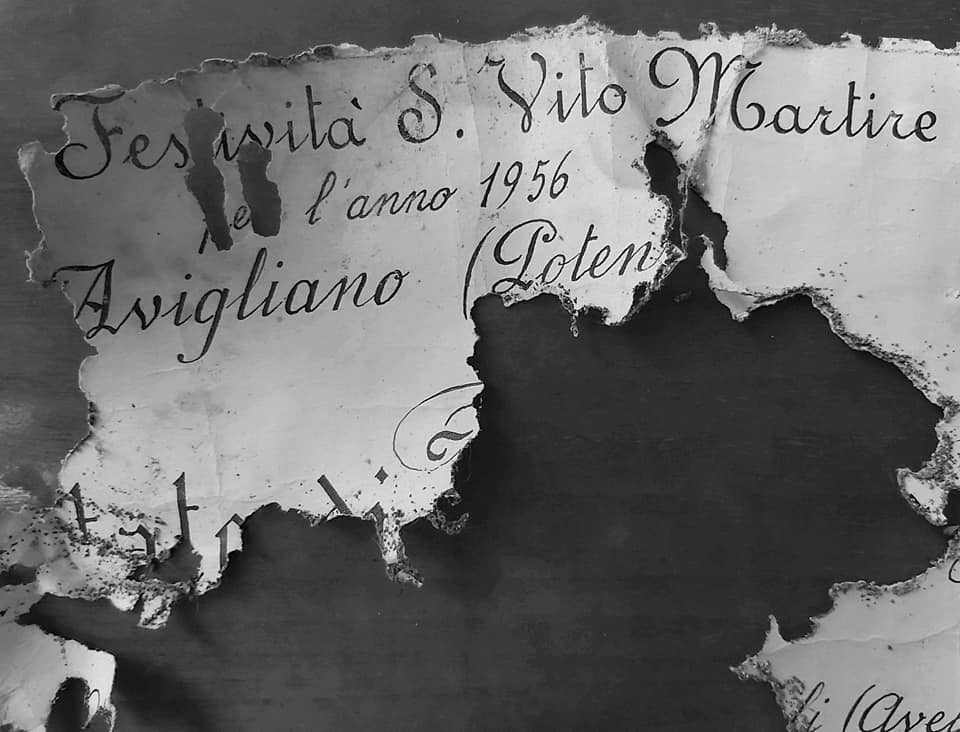 Festività S. Vito Martire
per l'anno 1956
Avigliano (Poten